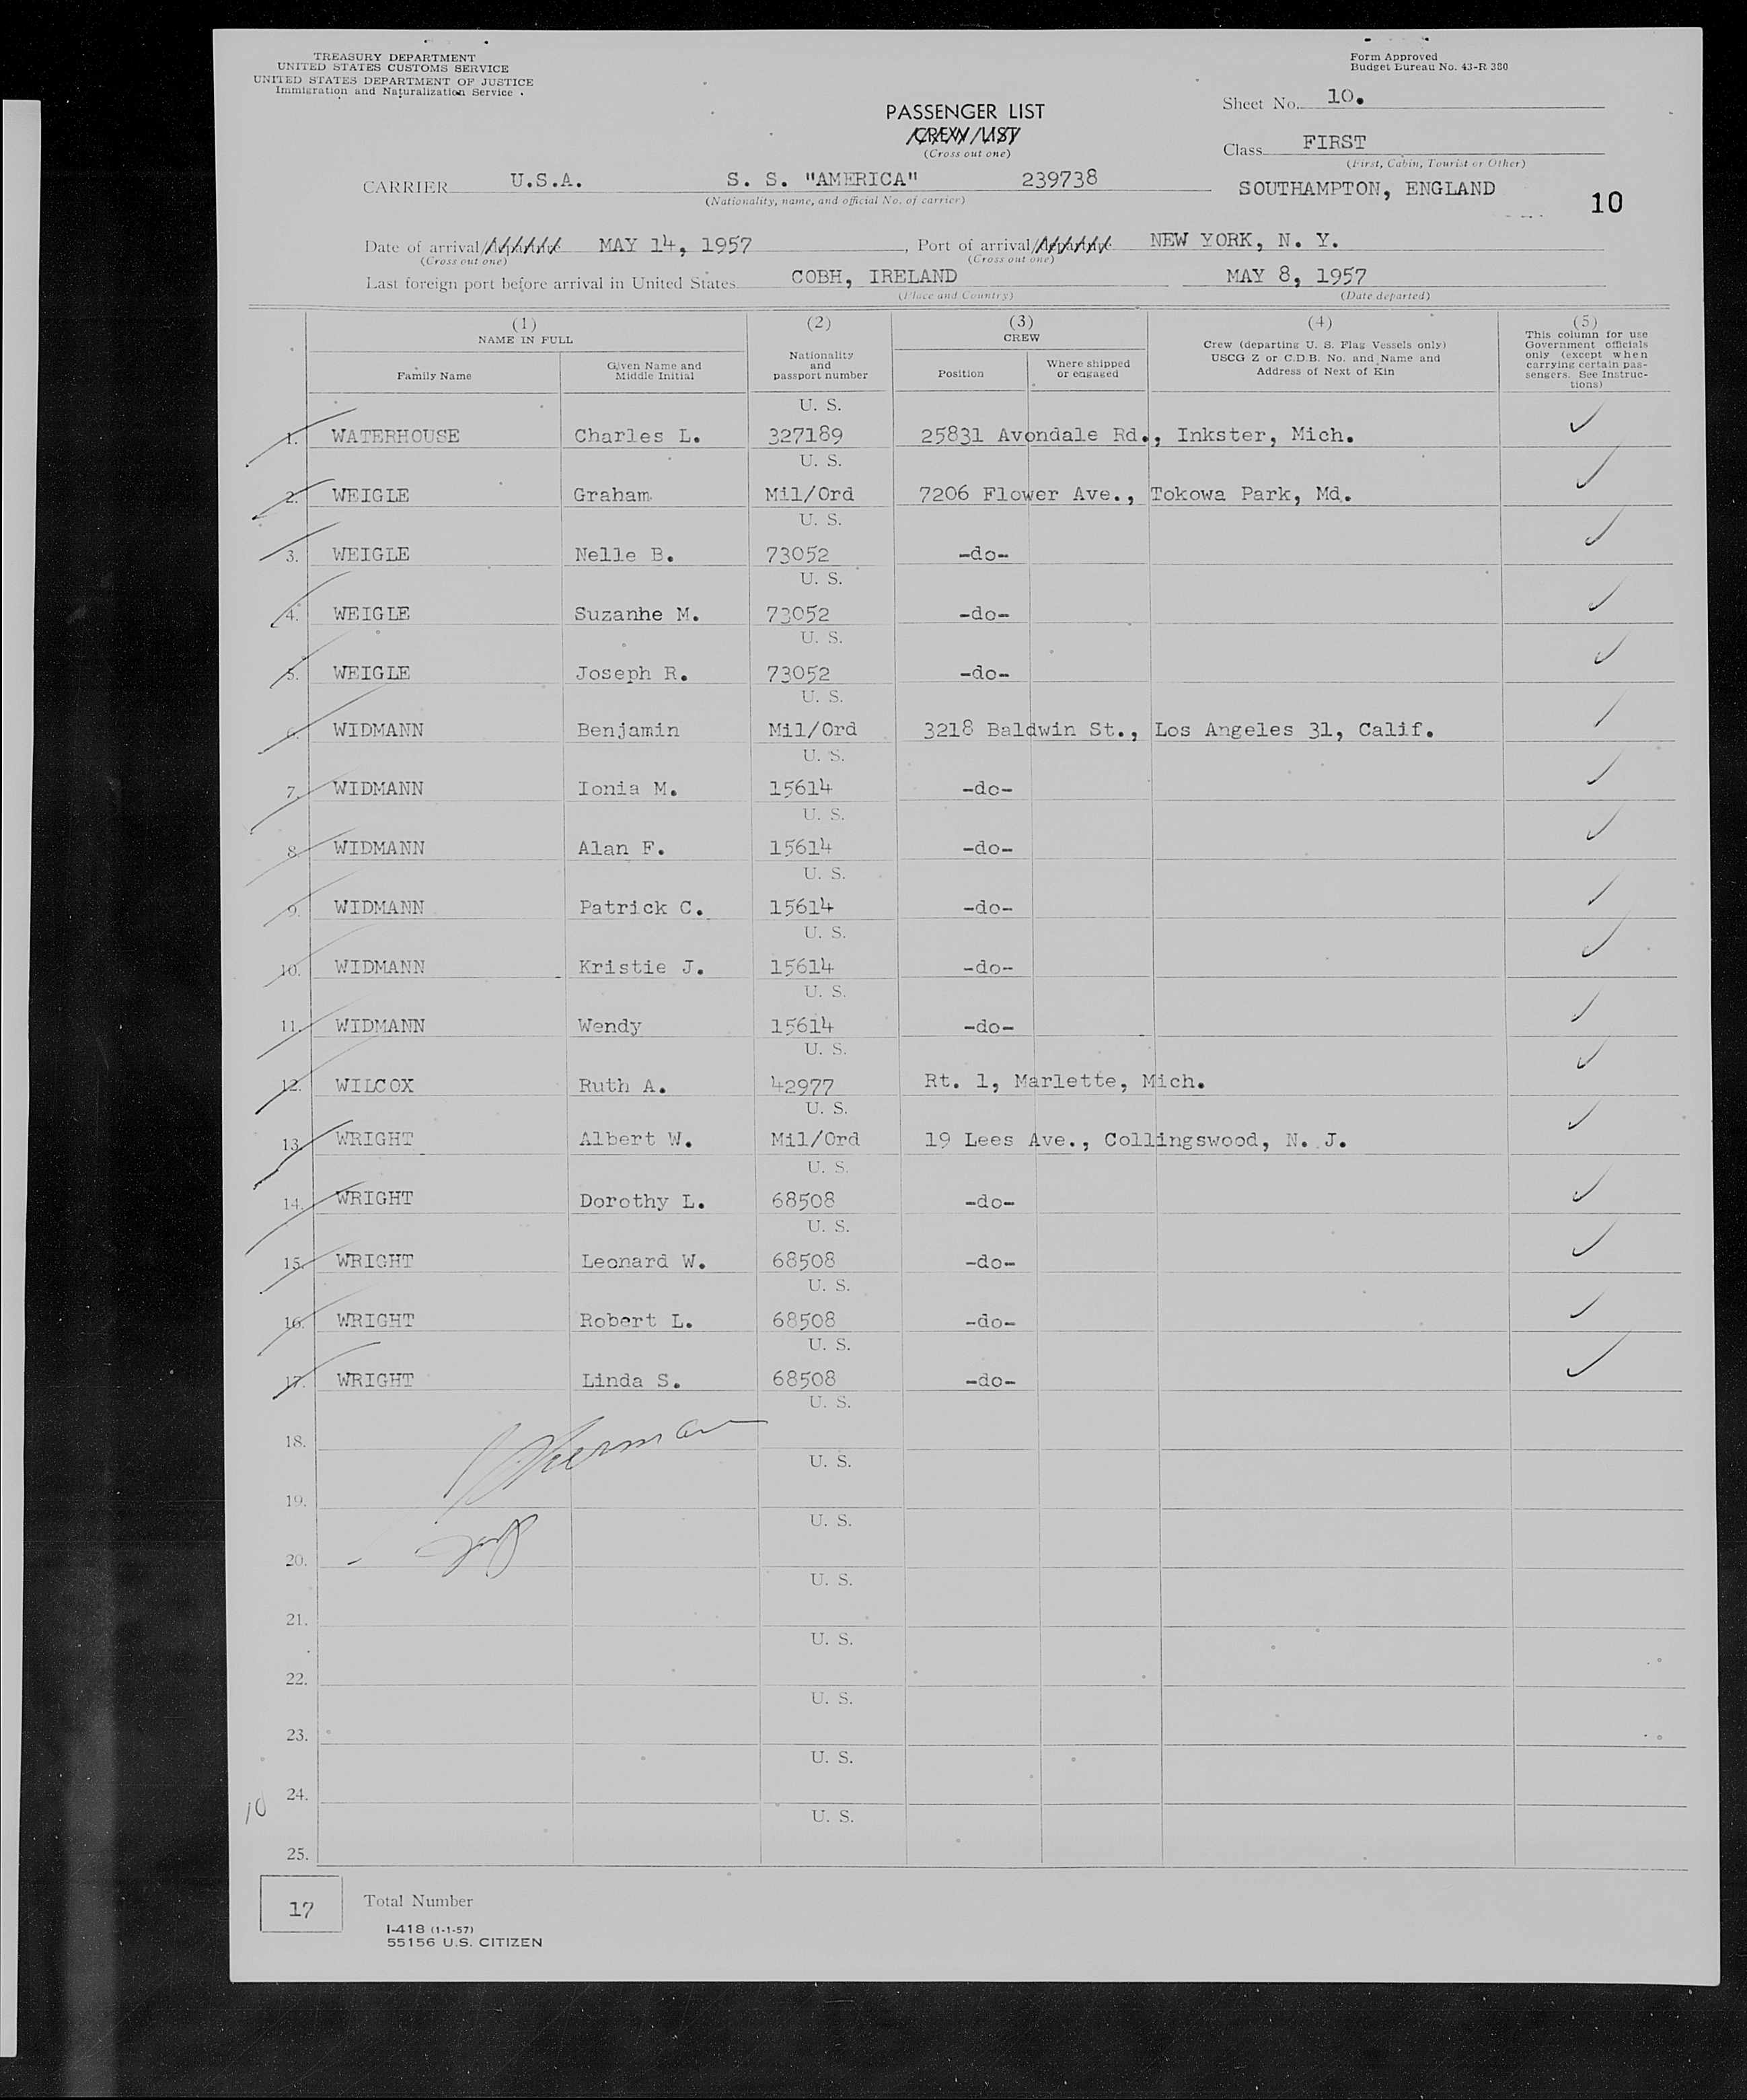 TREASURY DEPARTMENT
UNITED STATES CUSTOMS SERVICE
UNITED STATES DEPARTMENT OF JUSTICE
Immigration and Naturalization Service
Form Approved
Budget Bureau No. 43-R 380
PASSENGER LIST
CREW LIST
(Cross out one)
Sheet No. 10.
Class FIRST
(First, Cabin, Tourist or Other)
CARRIER U.S.A. S. S. "AMERICA" 239738
(Nationality, name, and official No. of carrier)
SOUTHAMPTON, ENGLAND
10
Date of arrival/departure MAY 14, 1957, Port of arrival/departure NEW YORK, N. Y.
(Cross out one) (Cross out one)
Last foreign port before arrival in United States COBH, IRELAND MAY 8, 1957
(Place and Country) (Date departed)
(1) NAME IN FULL
Family Name
Given Name and Middle Initial
(2) Nationality and passport number
(3) CREW
Position
Where shipped or engaged
(4) Crew (departing U. S. Flag Vessels only) USCG Z or C.D.B. No. and Name and Address of Next of Kin
(5) This column for use Government officials only (except when carrying certain passengers. See Instructions)
U. S.
1. WATERHOUSE Charles L. 327189 25831 Avondale Rd., Inkster, Mich.
U. S.
2. WEIGLE Graham Mil/Ord 7206 Flower Ave., Tokowa Park, Md.
U. S.
3. WEIGLE Nelle B. 73052 -do-
U. S.
4. WEIGLE Suzanhe M. 73052 -do-
U. S.
5. WEIGLE Joseph R. 73052 -do-
U. S.
6. WIDMANN Benjamin Mil/Ord 3218 Baldwin St., Los Angeles 31, Calif.
U. S.
7. WIDMANN Ionia M. 15614 -do-
U. S.
8. WIDMANN Alan F. 15614 -do-
U. S.
9. WIDMANN Patrick C. 15614 -do-
U. S.
10. WIDMANN Kristie J. 15614 -do-
U. S.
11. WIDMANN Wendy 15614 -do-
U. S.
12. WILCOX Ruth A. 42977 Rt. 1, Marlette, Mich.
U. S.
13. WRIGHT Albert W. Mil/Ord 19 Lees Ave., Collingswood, N. J.
U. S.
14. WRIGHT Dorothy L. 68508 -do-
U. S.
15. WRIGHT Leonard W. 68508 -do-
U. S.
16. WRIGHT Robert L. 68508 -do-
U. S.
17. WRIGHT Linda S. 68508 -do-
U. S.
18.
U. S.
19.
U. S.
20.
U. S.
21.
U. S.
22.
U. S.
23.
U. S.
24.
10
U. S.
25.
17 Total Number
I-418 (1-1-57)
55156 U.S. CITIZEN